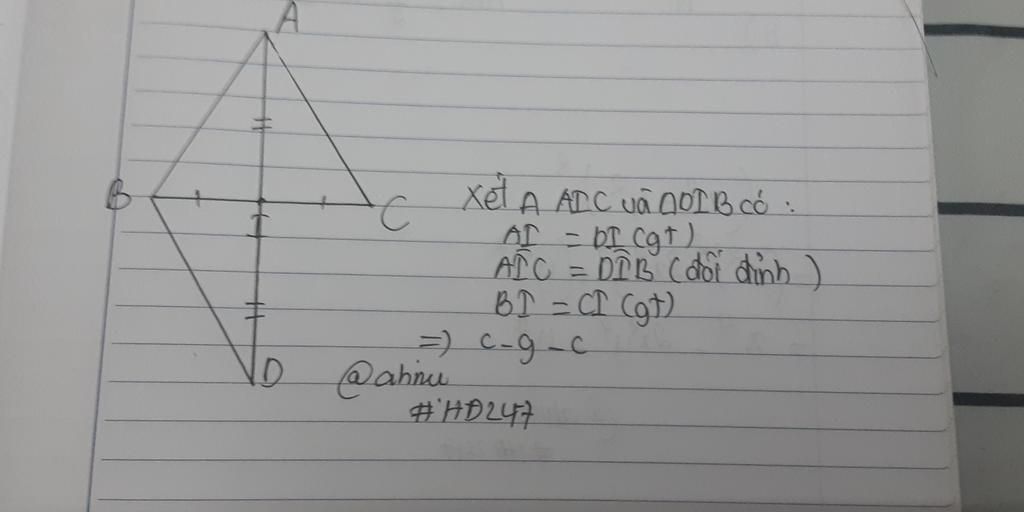 A
B
C
I
D
Xét Δ AIC và ΔDIB có :
AI = DI (gt)
AÎC = DÎB (đối đỉnh)
BI = CI (gt)
=) c-g-c
@ahinu
#HD247